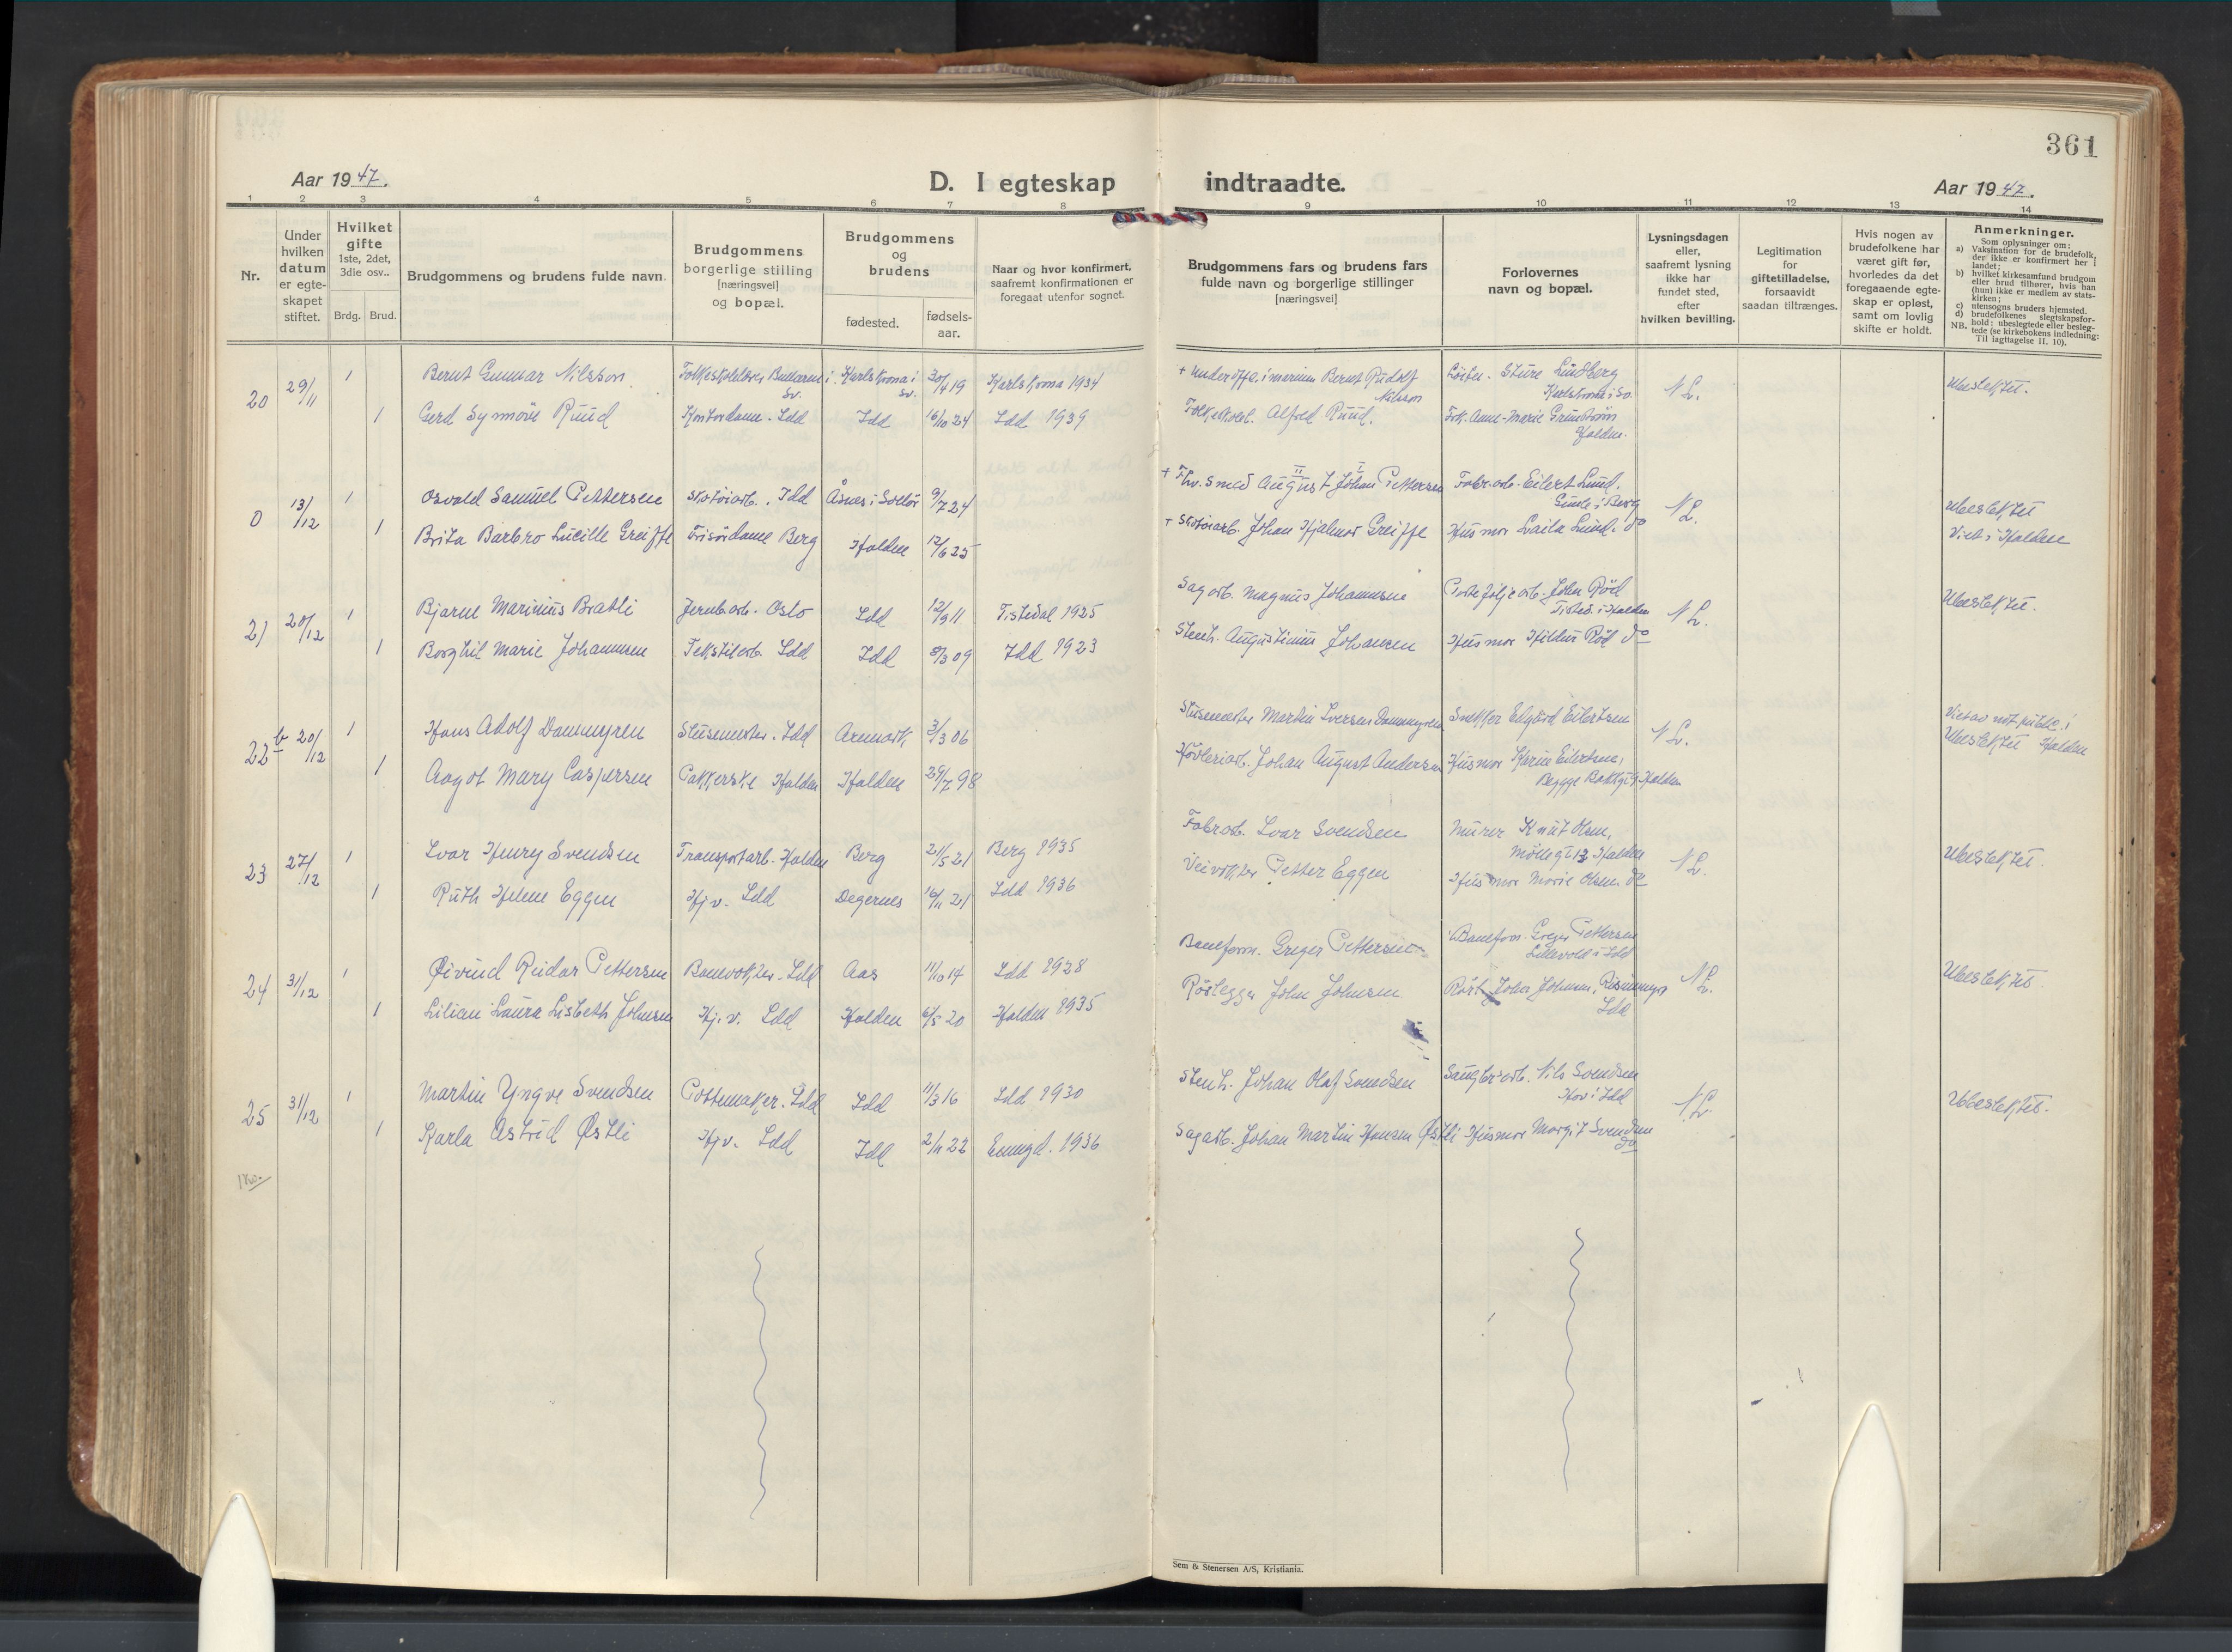 361
Aar 1947.
D. I egteskap indtraadte.
Aar 1947.
1 2 3 4 5 6 7 8 9 10 11 12 13 14
Nr.
Under hvilken datum er egteskapet stiftet.
Hvilket gifte 1ste, 2det, 3die osv..
Brdg. Brud.
Brudgommens og brudens fulde navn.
Brudgommens borgerlige stilling [næringsvei] og bopæl.
Brudgommens og brudens
fødested.
fødsels-aar.
Naar og hvor konfirmert, saafremt konfirmationen er foregaat utenfor sognet.
Brudgommens fars og brudens fars fulde navn og borgerlige stillinger [næringsvei]
Forlovernes navn og bopæl.
Lysningsdagen eller, saafremt lysning ikke har fundet sted, efter hvilken bevilling.
Legitimation for giftetilladelse, forsaavidt saadan tiltrænges.
Hvis nogen av brudefolkene har været gift før, hvorledes da det foregaaende egteskap er opløst, samt om lovlig skifte er holdt.
Anmerkninger.
Som oplysninger om:
a) Vaksination for de brudefolk, der ikke er konfirmert her i landet;
b) hvilket kirkesamfund brudgom eller brud tilhører, hvis han (hun) ikke er medlem av statskirken;
c) utensogns bruders hjemsted.
d) brudefolkenes slegtskapsforhold: ubeslegtede eller beslegtede (se kirkebokens indledning:
NB. Til iagttagelse II. 10).
20 29/11 1 Bernt Gunnar Nilsson Karlskrona i Sv. 30/4 19 Karlskrona 1934 + Underoffs. i marinen Bernt Rudolf Nilsson Sture Lundberg Karlskrona i Sv. N L. Ubeslektet.
1 Gerd Synnöve Ruud Kontordame. Idd Idd 16/10 24 Idd 1939 Folkeskolel. Alfred Ruud. Frk. Anne-Marie Halden.
0 13/12 1 Osvald Samuel Pettersen Skotöiarb. Idd Åsnes i Solör 9/7 24 + Fhv. smed August Johan Pettersen Fabr.arb. Eilert Lund. i Berg N L. Ubeslektet
1 Brita Barbro Lucille Greiffe Frisördame Berg Halden 12/6 25 + Skotöiarb. Johan Hjalmar Greiffe Husmor Laila Lund. do Viet i Halden
21 20/12 1 Bjarne Marinius Bratli Jernb.arb. Oslo Idd 12/9 11 Tistedal 1925 Sagarb. Magnus Johannesen Porteföljearb. John Röd Tisted. i Halden N L. Ubeslektet.
1 Borghil Marie Johannesen Tekstilarb. Idd Idd 8/3 09 Idd 1923 Stenh. Augustinius Johansen Husmor Hildur Röd do
22 b 20/12 1 Hans Adolf Dammyren Stuemester. Idd Aremark 3/3 06 Martin Iversen Dammyren Snekker Edgard Eilertsen N L. Viet av not. public. i Halden Ubeslektet
1 Aagot Mary Caspersen Pakkerske Halden Halden 25/7 98 Hövleriarb. Johan August Andersen Husmor Karin Eilertsen, Begge Bakkegt. 9 Halden
23 27/12 1 Ivar Henry Svendsen Transportarb. Halden Berg 21/5 21 Berg 1935 Fabr.arb. Ivar Svendsen Murer Knut Olsen, Möllegt 13 Halden N L. Ubeslektet.
1 Ruth Helene Eggen Hj.v. Idd Degernes 16/11 21 Idd 1936 Veivokter Petter Eggen Husmor Marie Olsen. do
24 31/12 1 Öivind Reidar Pettersen Banevokter. Idd Aas 11/10 14 Idd 1928 Baneform. Greger Pettersen Baneform. Greger Pettersen Lillevold i Idd N L. Ubeslektet
1 Lilian Laura Lisbeth Johnsen Hj.v. Idd Halden 6/5 20 Halden 1935 Rörlegger John Johnsen Rörl. John Johnsen, Idd
25 31/12 1 Martin Yngve Svendsen Pottemaker. Idd Idd 11/3 16 Idd 1930 Stenh. Johan Olaf Svendsen Nils Svendsen Hov i Idd N L. Ubeslektet.
1 Karla Astrid Östli Hj.v. Idd Idd 2/11 22 Enningd. 1936 Sagarb. Johan Martin Hansen Östli Husmor Margit Svendsen do
Sem & Stenersen A/S, Kristiania.